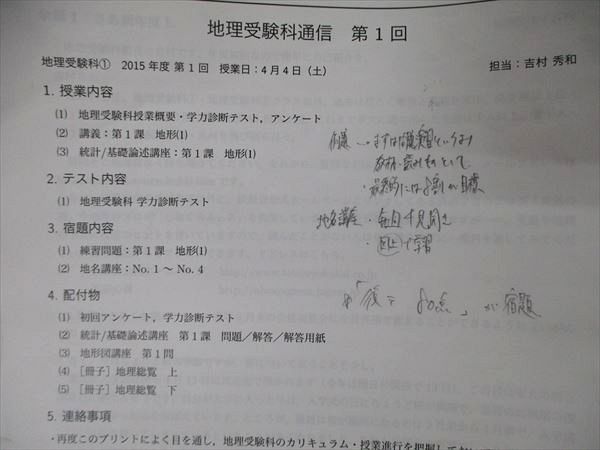 地理受験科通信 第1回
地理受験科① 2015年度 第1回 授業日:4月4日(土)
担当:吉村 秀和
1. 授業内容
(1) 地理受験科授業概要・学力診断テスト,アンケート
(2) 講義:第1課 地形(I)
(3) 統計/基礎論述講座:第1課 地形(I)
2. テスト内容
(1) 地理受験科 学力診断テスト
3. 宿題内容
(1) 練習問題:第1課 地形(I)
(2) 地名講座:No. 1 ~ No. 4
4. 配付物
(1) 初回アンケート,学力診断テスト
(2) 統計/基礎論述講座 第1課 問題/解答/解答用紙
(3) 地形図講座 第1問
(4) [冊子]地理総覧 上
(5) [冊子]地理総覧 下
5. 連絡事項
・再度このプリントによく目を通し,地理受験科のカリキュラム・授業進行を把握して
8割が目標
地名講座
学習
80点」が宿題